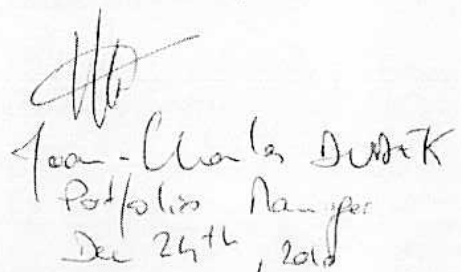 Jean-Charles
Portfolio Manager
Dec 24th, 2010